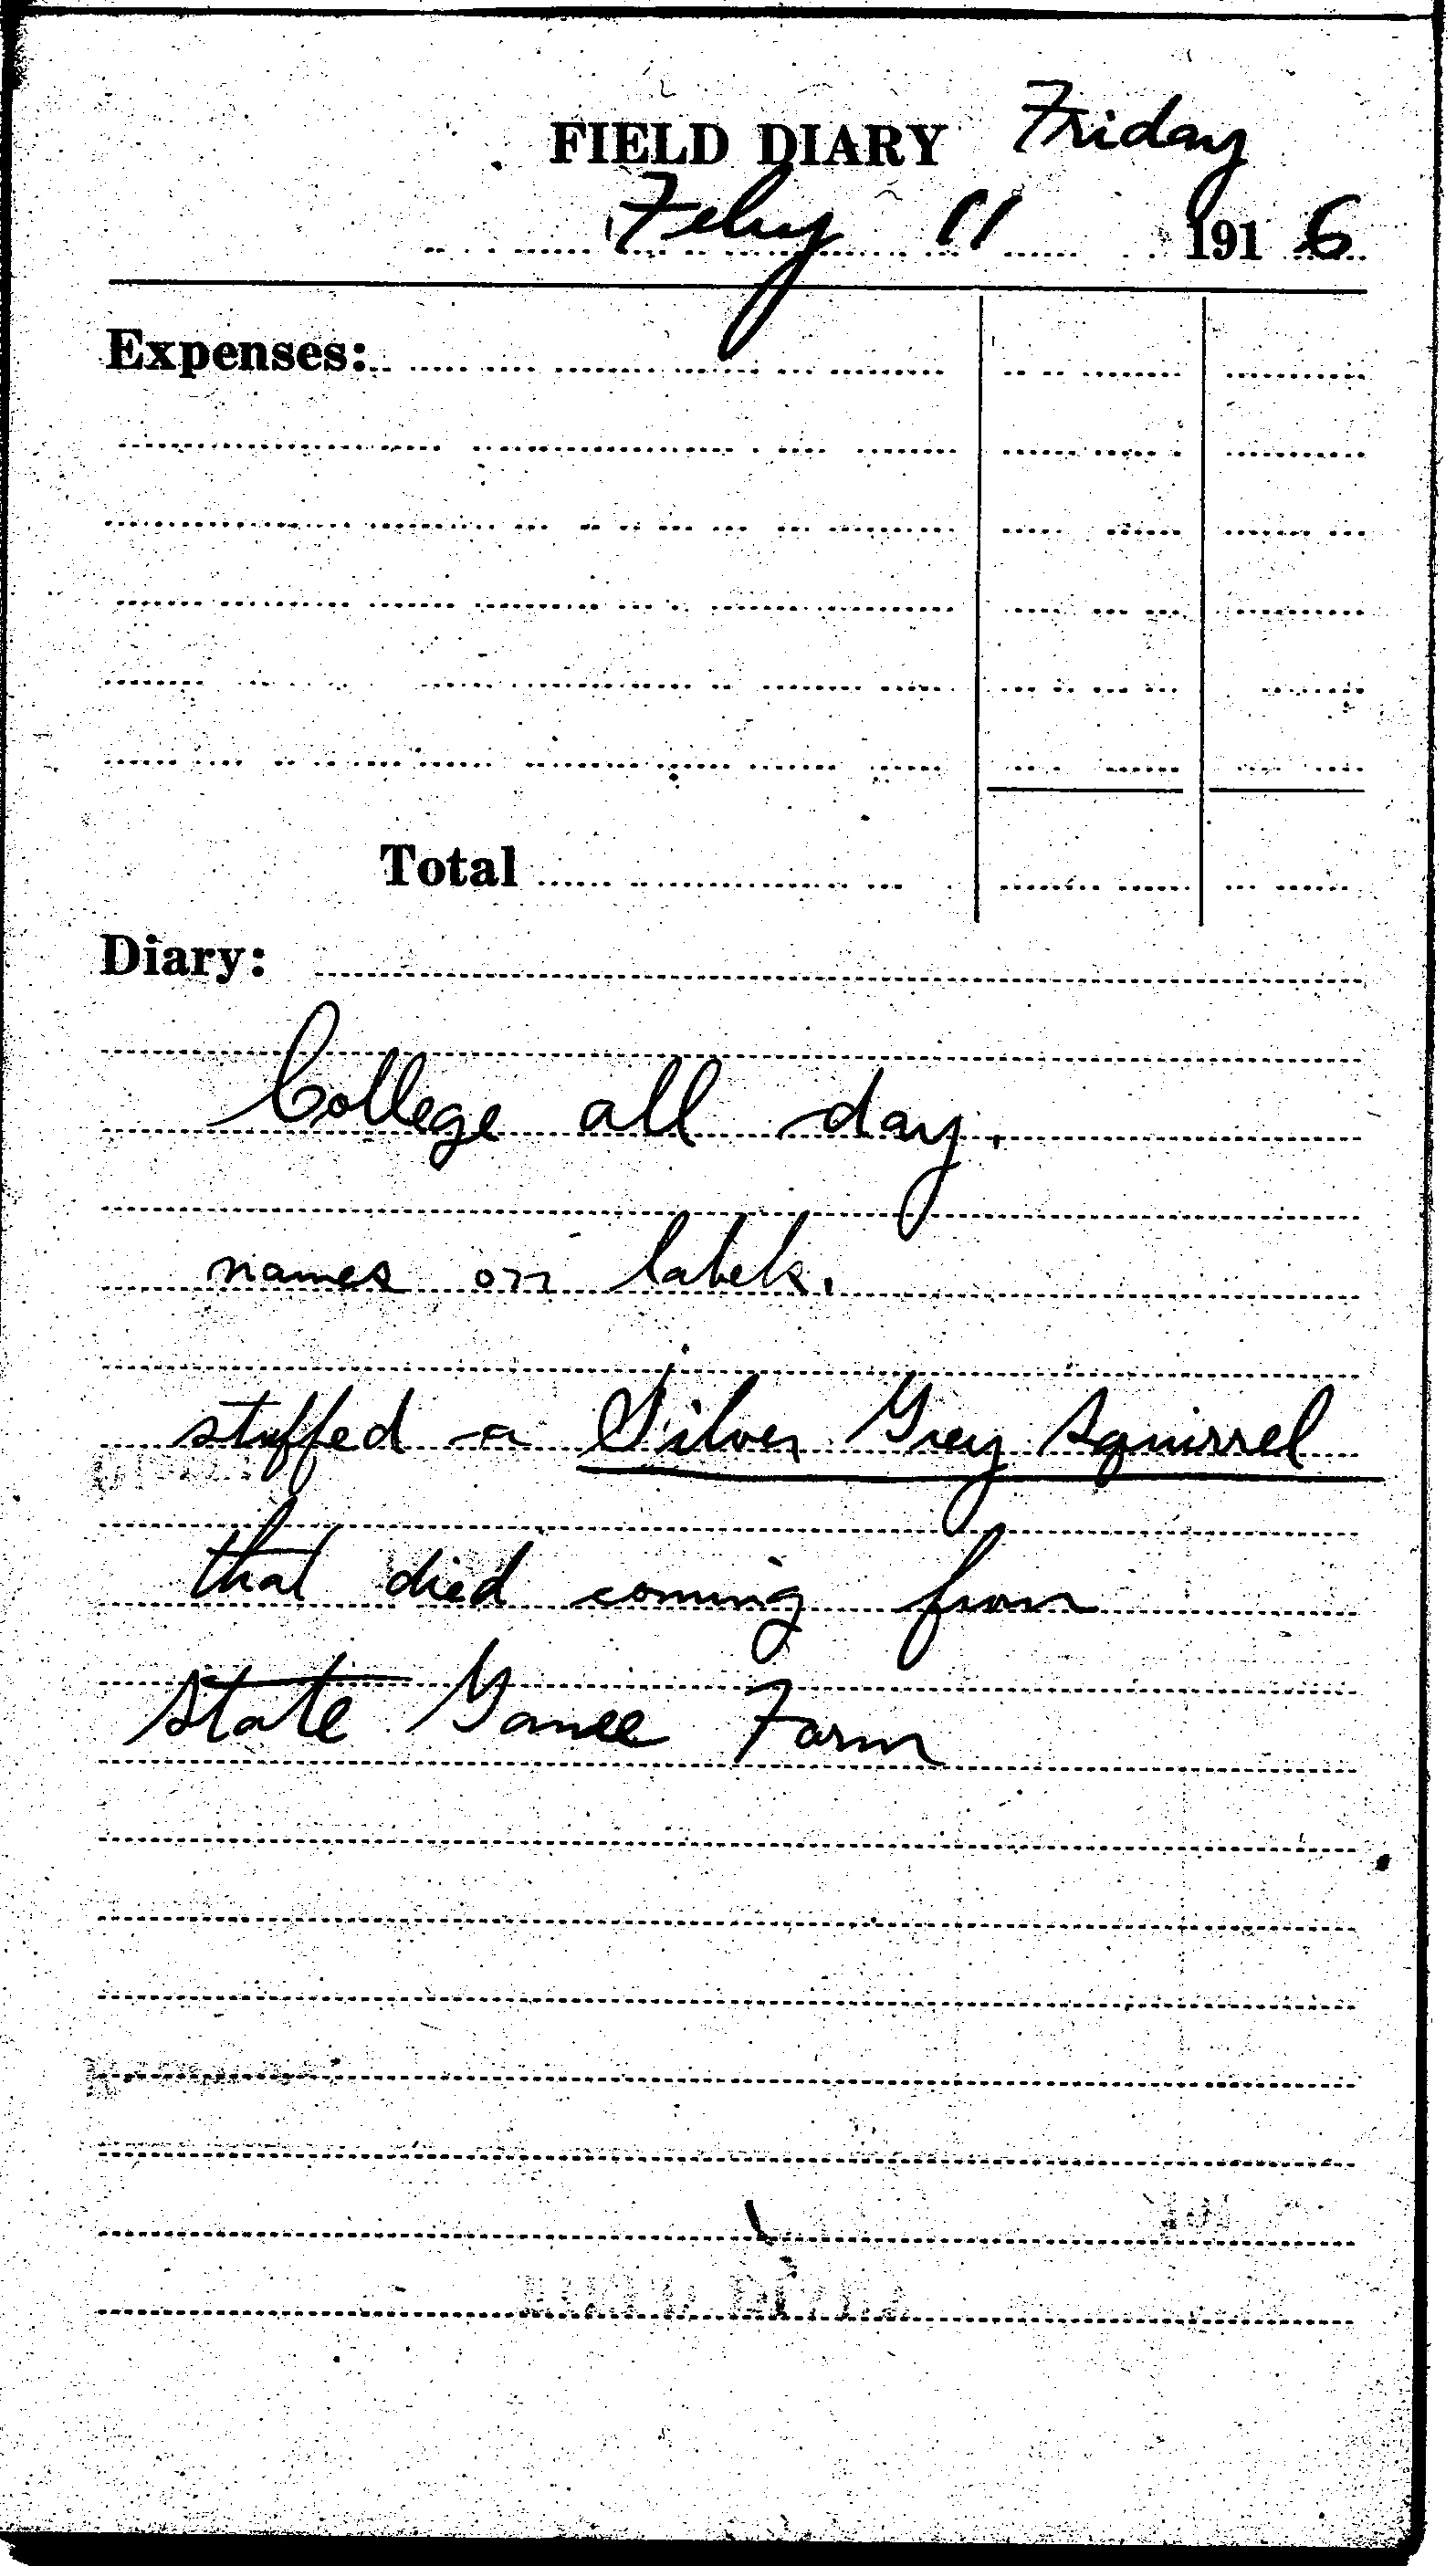 FIELD DIARY Friday
Feby 11 1916
Expenses:
Total
Diary:
College all day.
names on labels.
stuffed a Silver Grey Squirrel
that died coming from
State Game Farm